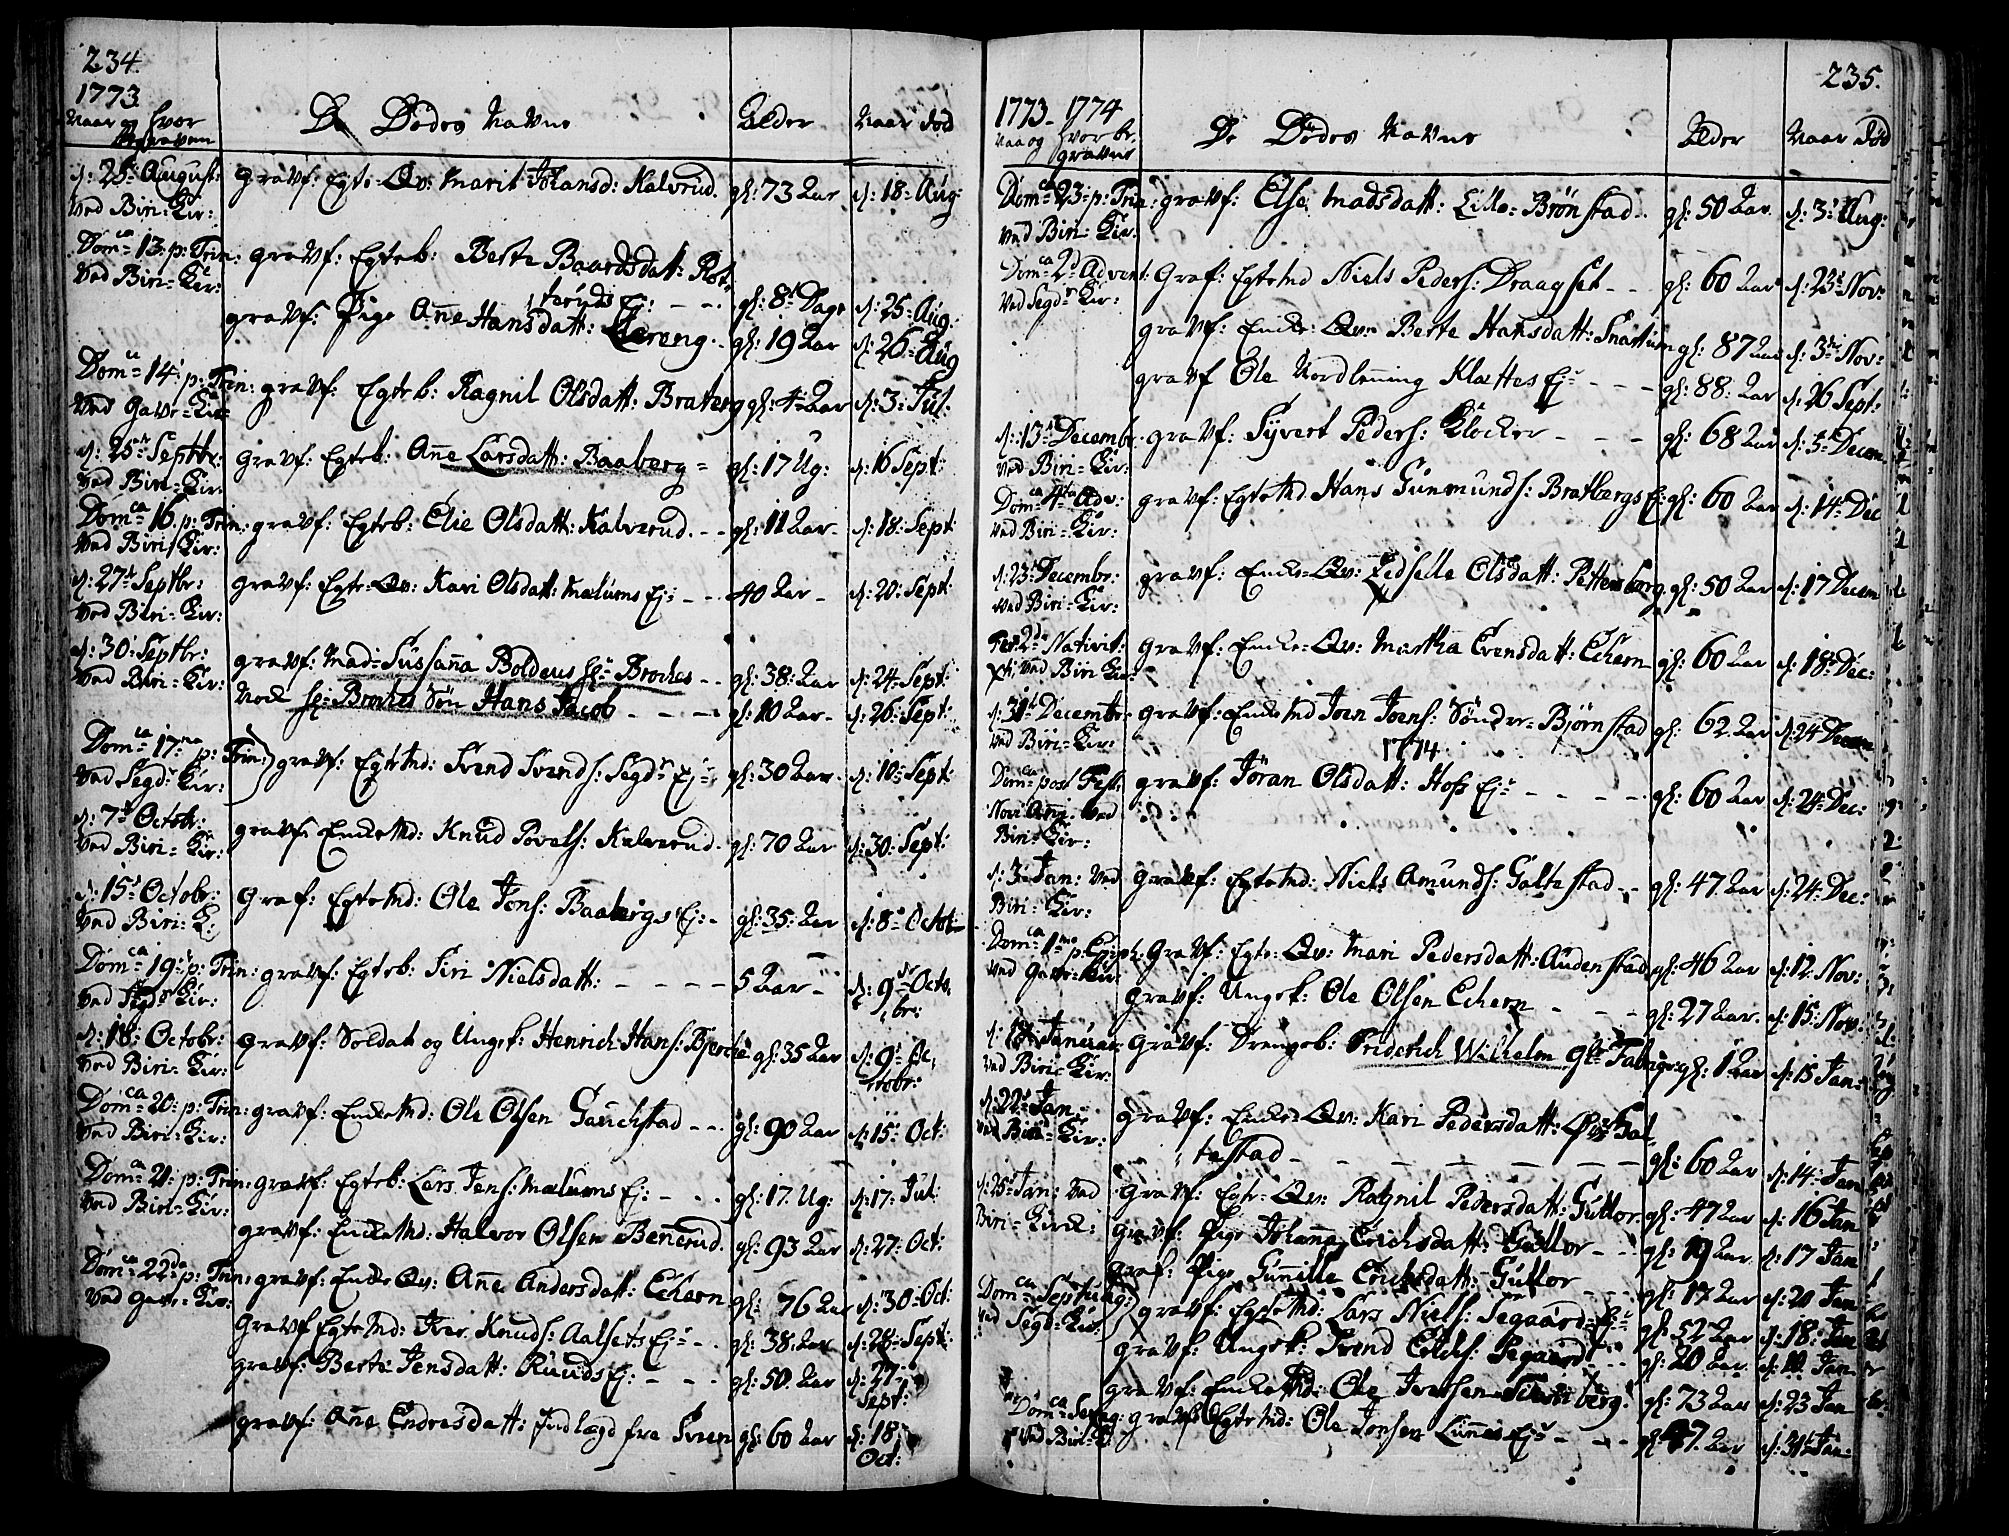 234.
1773
Naar og hvor
begraven
De Dødes Navne
Alder
Naar død
d: 25de August:
Ved Biri-Kir:
gravf: Egte-Qv: Marit Johansd: Kalvrud. gl: 73 Aar d: 18de Aug:
Domca 13. p: Trin:
Ved Biri-Kir:
gravf: Egteb: Berte Baardsdatt: Rot-
teruds Ej: - - gl: 8t Dage d: 25 Aug:
gravf: Pige Anne Hansdatt: Lereng. gl: 19 Aar d: 26 Aug
Domca 14. p: Trin:
Ved Gave-Kir:
gravf: Egteb: Ragnil Olsdatt: Braterg gl: 4 Aar d: 3: Jul:
d: 25de Septbr:
Ved Biri-Kir:
gravf: Egteb: Anne Larsdatt: Baaberg - gl: 17 Ug: d: 16 Sept:
Domca 16. p: Trin:
Ved Biri-Kir:
gravf: Egteb: Elie Olsdatt: Kalverud. - - gl: 11 Aar - d: 18: Sept:
d: 27de Septbr:
Ved Biri-Kir:
gravf: Egte-Qv: Kari Olsdatt: Mælums Ej: - - 40 Aar - d: 20: Sept:
d: 30: Septbr:
Ved Biri-Kir:
gravf: Mad: Sussanna Boldeus Sl: Broches - - gl: 38: Aar d: 24: Sept:
Nok Sl: Broches Søn Hans Jacob - - - - gl: 10 Aar - d: 26: Sept:
Domca 17ma p: Trin:
Ved Segds Kir:
gravf: Egtemd: Svend Svends: Segds Ej: gl: 30 Aar - d: 10: Sept:
d: 7de Octobr:
Ved Biri-Kir:
gravf: Enkemd: Knud Povels: Kalverud. gl: 70 Aar d: 30: Sept:
d: 15de Octobr:
Ved Biri-K:
Graf: Egtemd: Ole Jons: Baabergs Ej: - gl: 35: Aar d: 8de Octob:
Domca 19de p: Trin:
Ved Segds Kir:
gravf: Egteb: Siri Nielsdatt: - - - - 5 Aar - d: 9de Octo-
bre:
d: 18: Octobr:
Ved Biri-Kir:
gravf: Soldat og Ungk: Henrich Hans: Bjerche gl: 35 Aar d: 9de Oc-
tobr:
Domca 20: p: Trin:
Ved Biri-Kir:
gravf: Enkemd: Ole Olsen Gauchstad - - - gl: 90 Aar d: 15: Oct:
Domca 21: p: Trin:
Ved Biri-Kir:
gravf: Egteb: Lars Jens: Mælums Ej: - - - gl: 17. Ug: d: 17: Jul:
gravf: Enkemd: Halvor Olsen Bennerud. gl: 93 Aar d: 27: Oct:
Domca 22da p: Trin:
Ved Gave-Kir:
gravf: Enke Qv: Anne Andersdatt: Echern gl: 76 Aar d: 30: Oct:
Gravf Egtemd: Iver Knuds: Aalsets Ej: - - gl: 38: Aar d: 24: Sept:
gravf: Berte Jensdatt: Ruuds Ej: - - - gl: 50. Aar d: 27:
Sept:
gravf: Anne Endresdatt: Indlagd fra Sveen gl: 60 Aar d: 18:
Oct:
235.
1773. 1774
Naar og hvor be-
gravne
De Dødes Navne
Alder
Naar Død
Domca 23: p: Trin:
Ved Biri-Kir:
gravf: Else Madsdatt: Lille-Brønstad. gl: 50 Aar. d: 3: Aug:
Domca 2da Advent:
Ved Segds Kir:
Graf: Egtemd Niels Peders: Draagset - - gl: 60 Aar d: 23: Nov:
gravf: Enke-Qv: Berte Hansdatt: gl: 87 Aar d: 3de Nov:
gravf Ole Nordlening Klættes Ej: - - - gl: 88. Aar d: 26 Sept:
d: 13de Decembr:
Ved Biri-Kir:
gravf: Syvert Peders: Klocker - - - gl: 68 Aar d: 5de Decem.
Domca 4ta Adv:
Ved Biri-Kir:
gravf: Egtemd: Hans Gunmunds: Bratbergs Ej: gl: 60 Aar d: 14de Dec
d: 23de Decembr:
Ved Biri-Kir:
gravf: Enke-Qv: Zidselle Olsdatt: Pettersborg. gl: 50 Aar d: 17 Decem
Fer: 2da Nativit:
Xti Ved Biri Kir:
gravf: Enke-Qv: Martha Evensdatt: Echern gl: 60 Aar d: 18de Dec:
d: 31te Decembr:
Ved Biri-Kir:
gravf: Enkemd Joen Joens: Sønder-Bjørnstad gl: 62 Aar d: 24 Decem
1774.
Domca post Fest:
Novi Anni Ved
Biri-Kir:
gravf: Jøran Olsdatt: Hofs Ej: - - - - gl: 60 Aar d: 24: Dec:
d: 3de Jan: Ved
Biri-Kir:
gravf: Egtemd: Niels Amunds: Galtestad - - gl: 47. Aar d: 24: Dec:
Domca 1ma p: Epiph:
Ved Gave-Kir:
Gravf: Egte-Qv: Mari Pedersdatt: Audenstad gl: 46 Aar d: 12. Nov:
gravf: Ungk: Ole Olsen Echern - - - gl: 27 Aar. d: 15: Nov:
Januar
Ved Biri-Kir:
gravf: Drengeb: Friderich Wilhelm gl: 1 Aar d: 15 Jan:
d: 22de Jan:
Ved Biri-Kir:
gravf: Enke-Qv: Kari Pedersdatt: Øvr Gal-
testad - - - - - - gl: 60 Aar d: 14: Jan
d: 25de Jan: Ved
Biri-Kirke:
gravf: Egte-Qv: Ragnil Pedersdatt: Gullor. gl: 47 Aar d: 16 Jan
gravf: Pige Johanna Erichsdatt: Gullor - - gl: 19 Aar. d: 17 Jan
graf: Pige Gunnille Erichsdatt: Gullor - - gl: 17 Aar d: 20 Jan
Domca Septuag:
Ved Segds-Kir:
gravf: Egtemd: Lars Niels: Segaard-Ej: gl: 52 Aar d: 18: Jan
gravf: Ungk: Svend Erichs: Segaard - - gl: 20 Aar. d: Jan
gravf: Enkemd: Ole Iversen gl: 73 Aar d: 23 Jan
Domca Sexag:
Ved Biri-K:
gravf: Egtemd: Ole Jonsen Ej: - - - gl: 47. Aar d: 31te Jan: